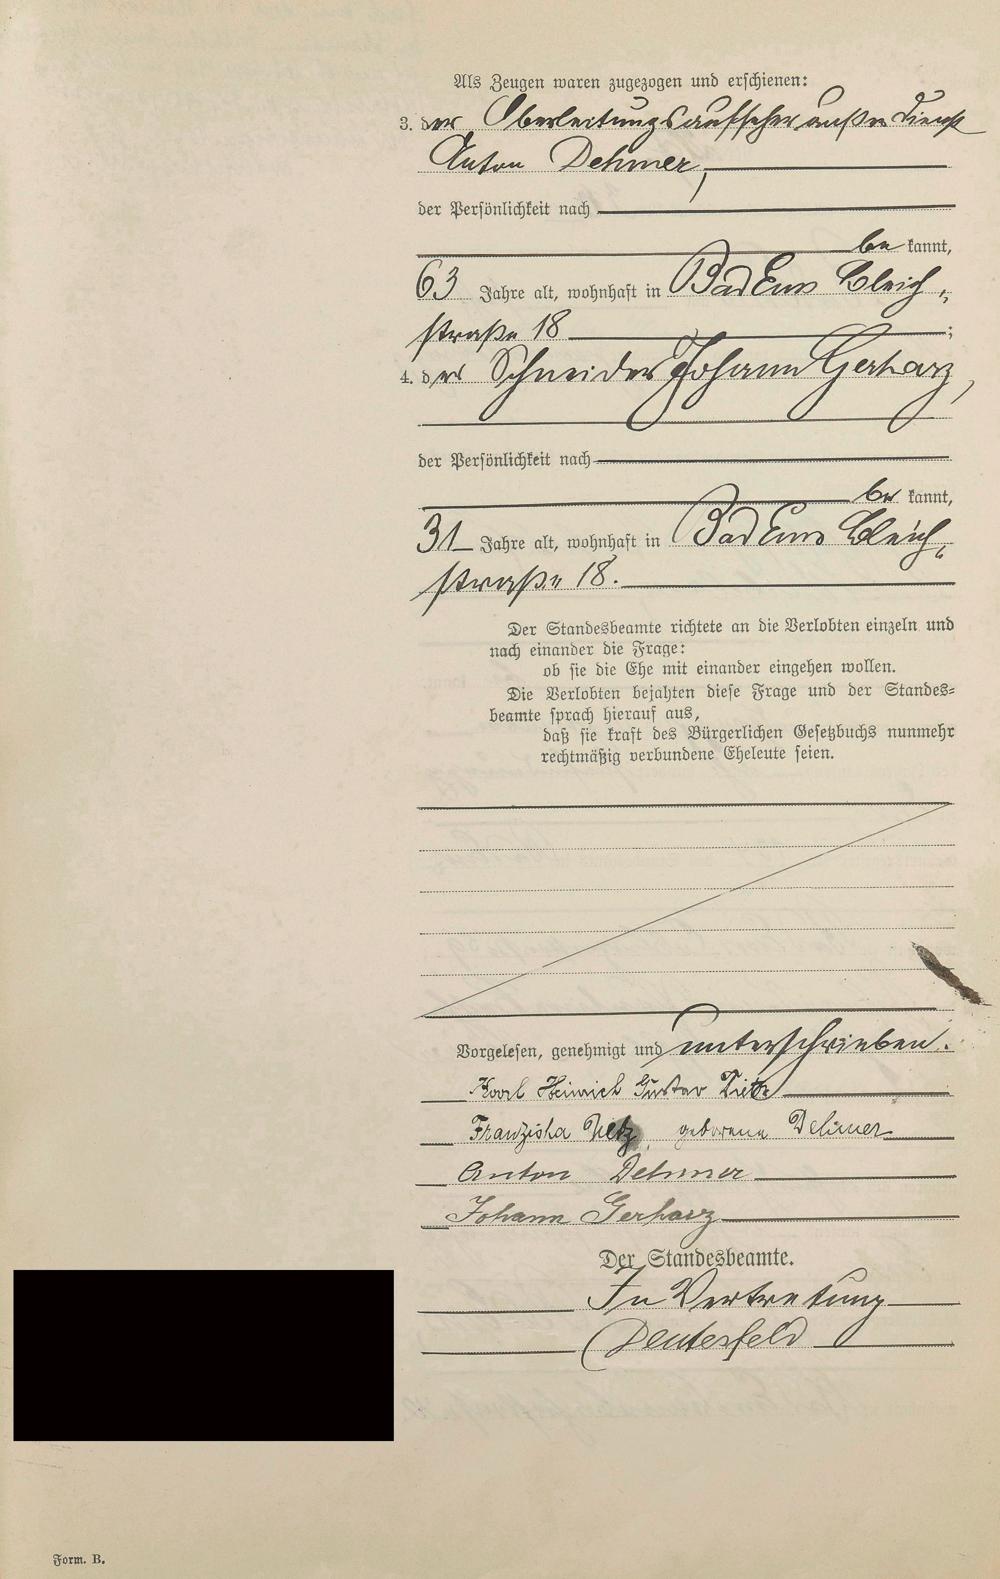 Als Zeugen waren zugezogen und erschienen:
3. der Oberleitungsaufseher außer Dienst
Anton Dehmer,
der Persönlichkeit nach
be kannt,
63 Jahre alt, wohnhaft in Bad Ems Bleich-
straße 18 ;
4. der Schneider Johann Gerharz,
der Persönlichkeit nach
be kannt,
31 Jahre alt, wohnhaft in Bad Ems Bleich-
straße 18.
Der Standesbeamte richtete an die Verlobten einzeln und
nach einander die Frage:
ob sie die Ehe mit einander eingehen wollen.
Die Verlobten bejahten diese Frage und der Standes-
beamte sprach hierauf aus,
daß sie kraft des Bürgerlichen Gesetzbuchs nunmehr
rechtmäßig verbundene Eheleute seien.
Vorgelesen, genehmigt und unterschrieben.
Karl Heinrich Gustav
Franziska geborene Dehmer
Anton Dehmer
Johann Gerharz
Der Standesbeamte.
In Vertretung
Form. B.